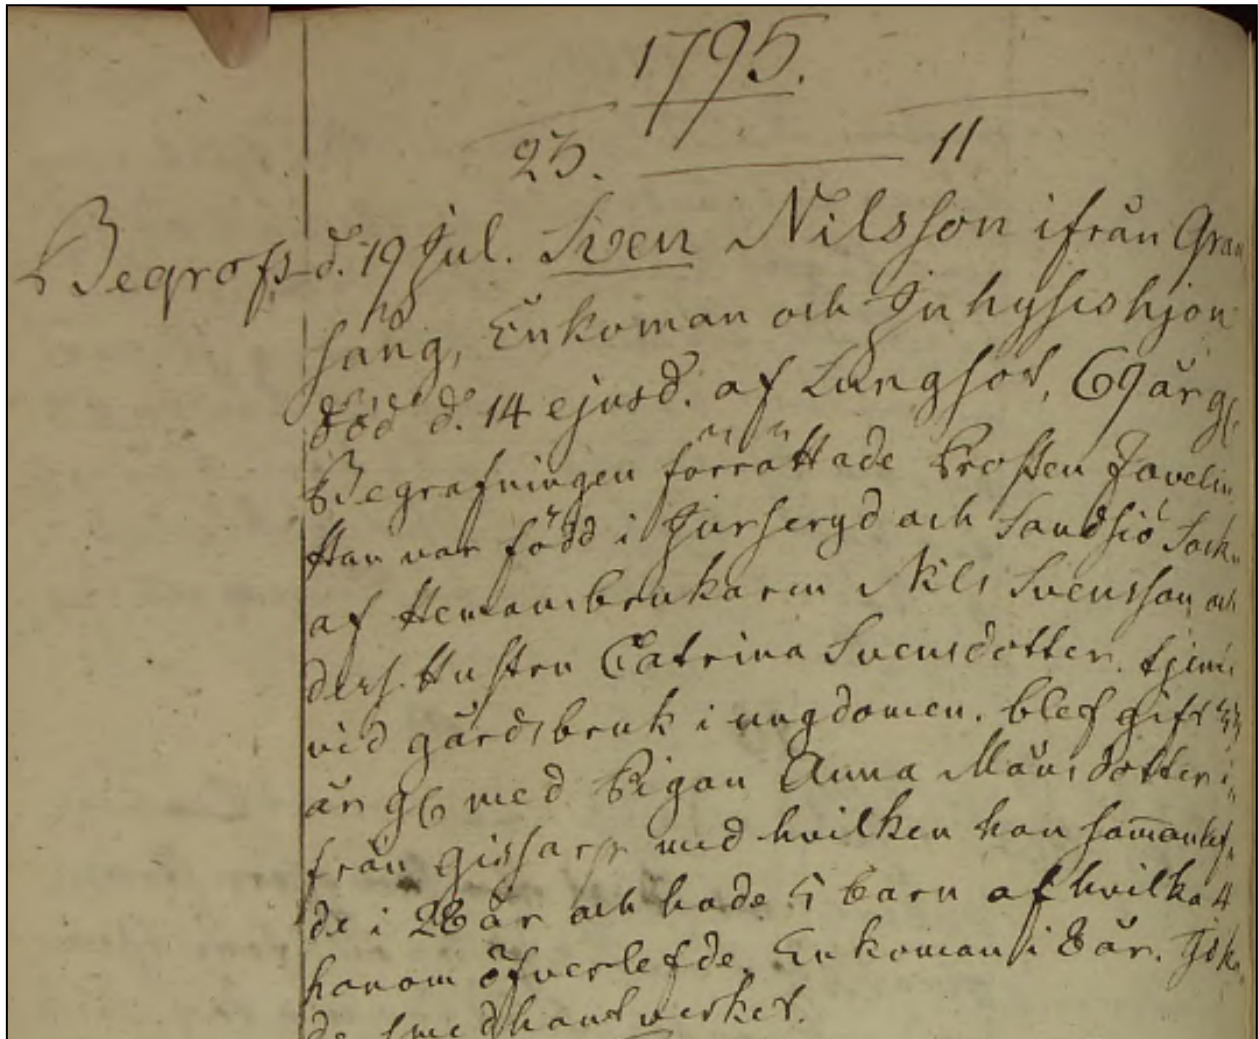 1795.
23. 11
Begrofs d. 19 Jul. Sven Nilsson ifrån Gran
hång, Enkoman och Inhyseshjon
död d. 14 ejusd. af Lungsot, 69 år gl.
Begrafningen förrättade Prosten Javelin
Han var född i Jurseryd och Sandsiö Sock.
af Hemansbrukaren Nils Svensson och
ders. Hustru Catrina Svensdotter. tjent
vid gårdsbruk i ungdomen. blef gift
år gl. med Pigan Anna Månsdotter i
från Gissarp med hvilken han samanlef
de i 28 år och hade 5 barn af hvilka 4
honom öfverlefde. Enkoman i 8 år. Idk
de smedhantverket.